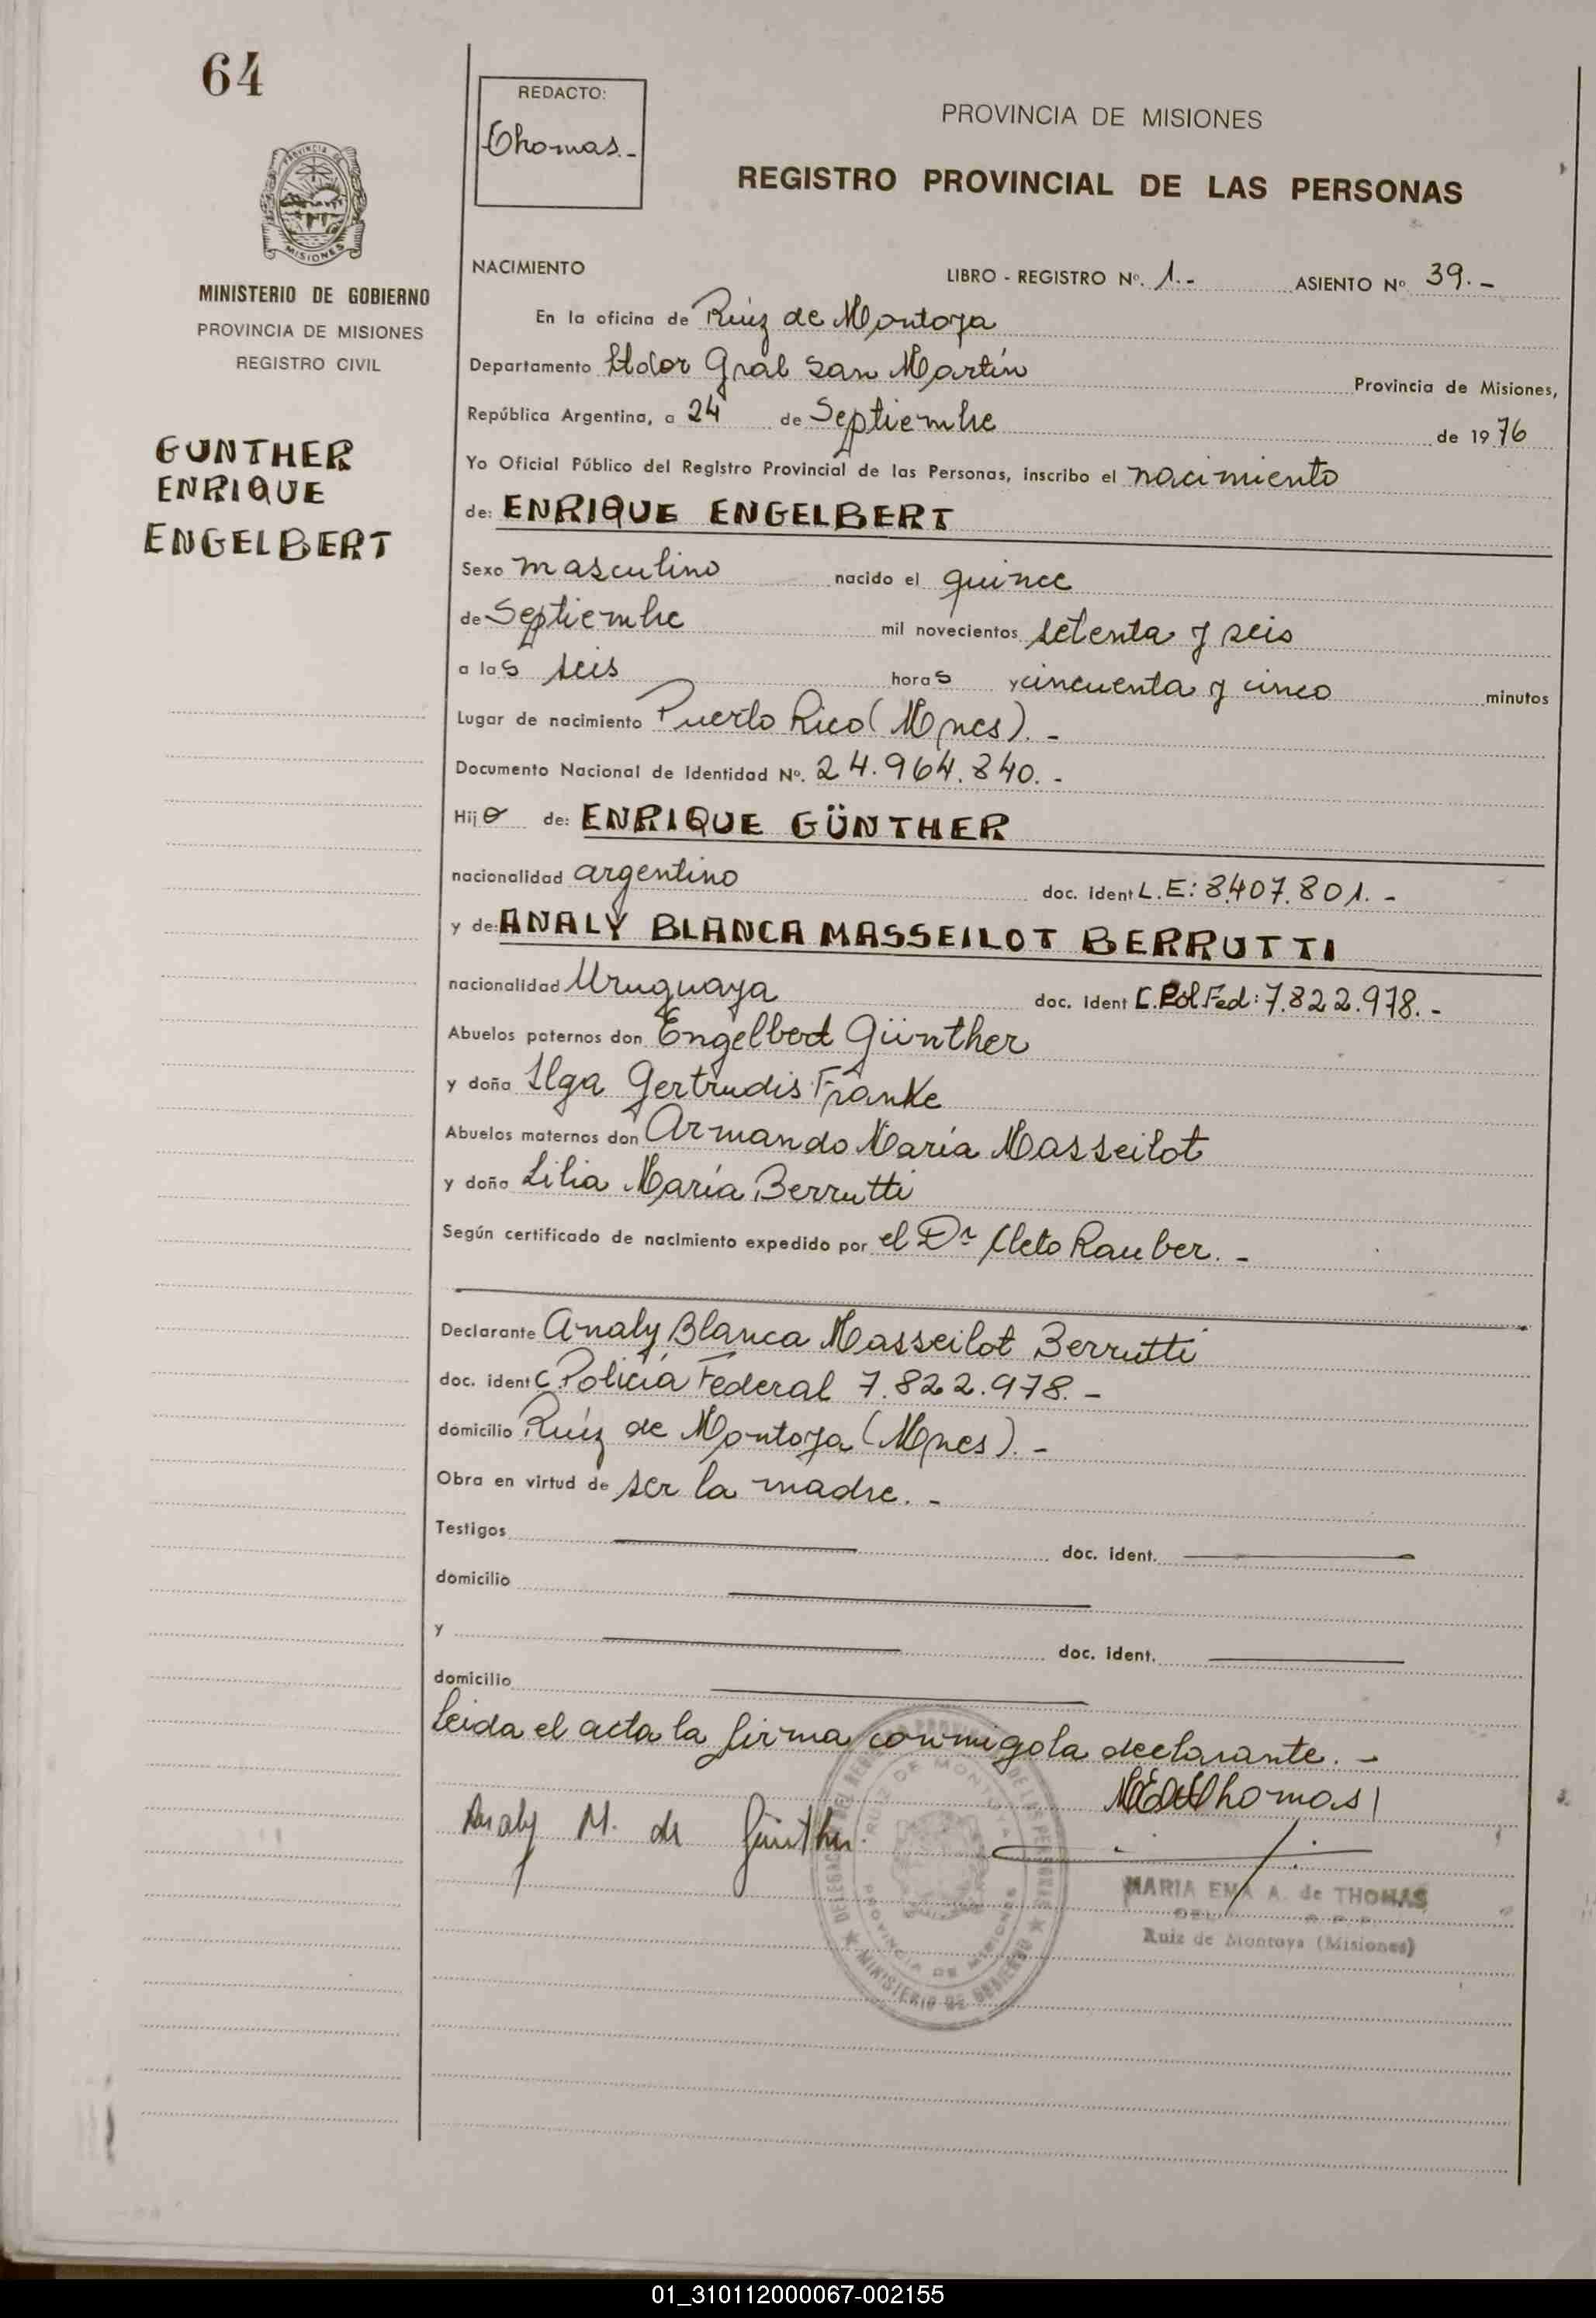 64
REDACTO:
Thomas.-
PROVINCIA DE MISIONES
REGISTRO PROVINCIAL DE LAS PERSONAS
PROVINCIA DE
MISIONES
MINISTERIO DE GOBIERNO
PROVINCIA DE MISIONES
REGISTRO CIVIL
GUNTHER
ENRIQUE
ENGELBERT
NACIMIENTO LIBRO - REGISTRO Nº. 1.- ASIENTO Nº 39.-
En la oficina de Ruiz de Montoya
Departamento Ltdor Gral San Martín Provincia de Misiones,
República Argentina, a 24 de Septiembre de 1976
Yo Oficial Público del Registro Provincial de las Personas, inscribo el nacimiento
de: ENRIQUE ENGELBERT
Sexo masculino nacido el quince
de Septiembre mil novecientos setenta y seis
a las seis horas y cincuenta y cinco minutos
Lugar de nacimiento Puerto Rico (Mnes).-
Documento Nacional de Identidad Nº. 24.964.840.-
Hijo de: ENRIQUE GÜNTHER
nacionalidad argentino doc. ident L.E: 8.407.801.-
y de: ANALY BLANCA MASSEILOT BERRUTTI
nacionalidad Uruguaya doc. ident C.Pol.Fed: 7.822.978.-
Abuelos paternos don Engelbert Günther
y doña Ilga Gertrudis Franke
Abuelos maternos don Armando María Masseilot
y doña Lilia María Berrutti
Según certificado de nacimiento expedido por el Dr Cleto Rauber.-
Declarante Analy Blanca Masseilot Berrutti
doc. ident C.Policía Federal 7.822.978.-
domicilio Ruíz de Montoya (Mnes).-
Obra en virtud de ser la madre.-
Testigos doc. ident.
domicilio
y doc. ident.
domicilio
Leida el acta la firma conmigo la declarante.-
Analy M. de Günther
MEdeThomas
RUIZ DE MONTOYA
PROVINCIA DE MISIONES
MINISTERIO DE GOBIERNO
MARIA EMA A. de THOMAS
Ruiz de Montoya (Misiones)
01_310112000067-002155